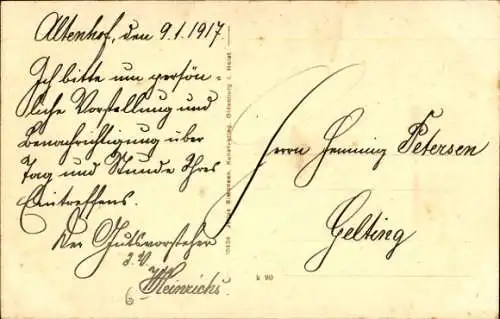 Altenhof, den 9.1.1917.
Ich bitte um persön-
liche Vorstellung und
Benachrichtigung über
Tag und Stunde Ihres
Eintreffens.
Der Gutsvorsteher
J. V.
Heinrichs
Herrn Henning Petersen
Gelting
k 90